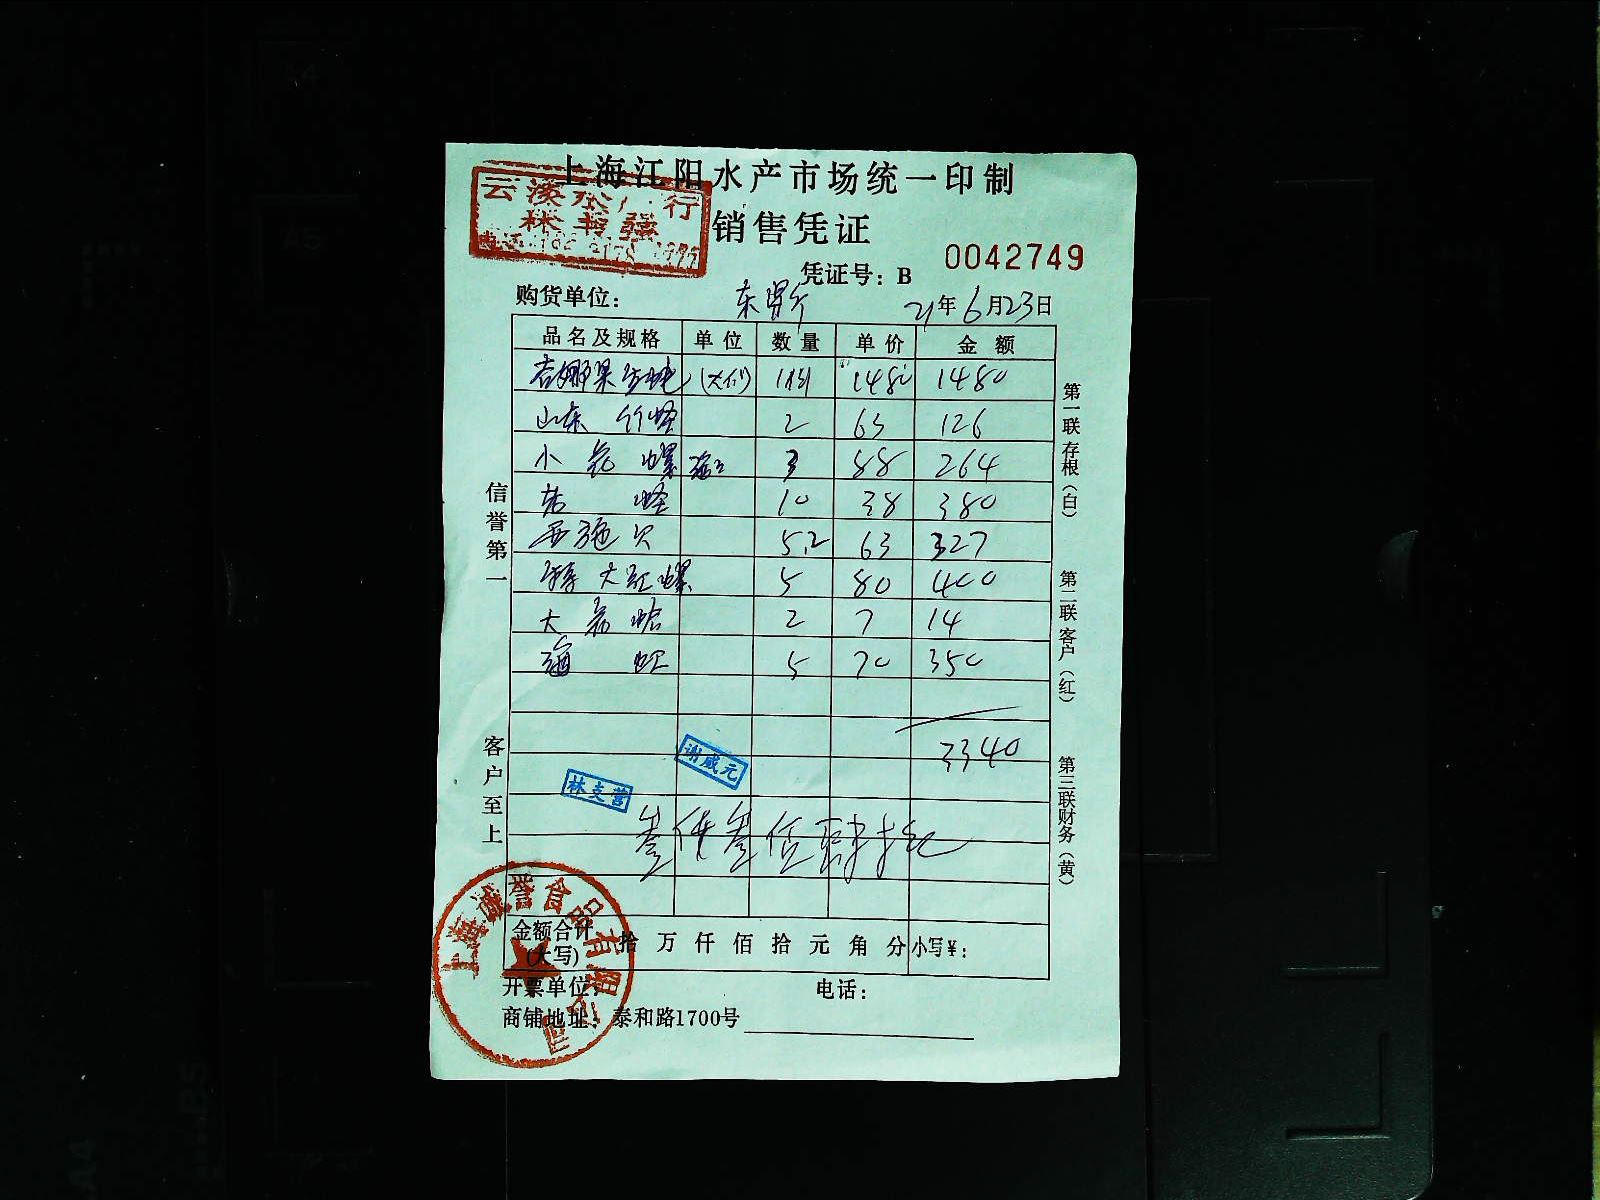 上海江阳水产市场统一印制
销售凭证
行
林 强
凭证号：B 0042749
购货单位：
21年6月23日
品名及规格 单位 数量 单价 金额
1480 1480
山东 竹蛏 2 63 126
小花螺 3 88 264
蛏 10 38 380
西施贝 5.2 63 327
大红螺 5 80 400
大 蛤 2 7 14
海虹 5 70 350
3340
谢咸元
林支营
叁仟叁佰肆拾元
金额合计
(大写) 拾 万 仟 佰 拾 元 角 分 小写¥：
开票单位： 电话：
商铺地址：泰和路1700号
上海诚誉食品有限公司
信誉第一
客户至上
第一联存根(白)
第二联客户(红)
第三联财务(黄)